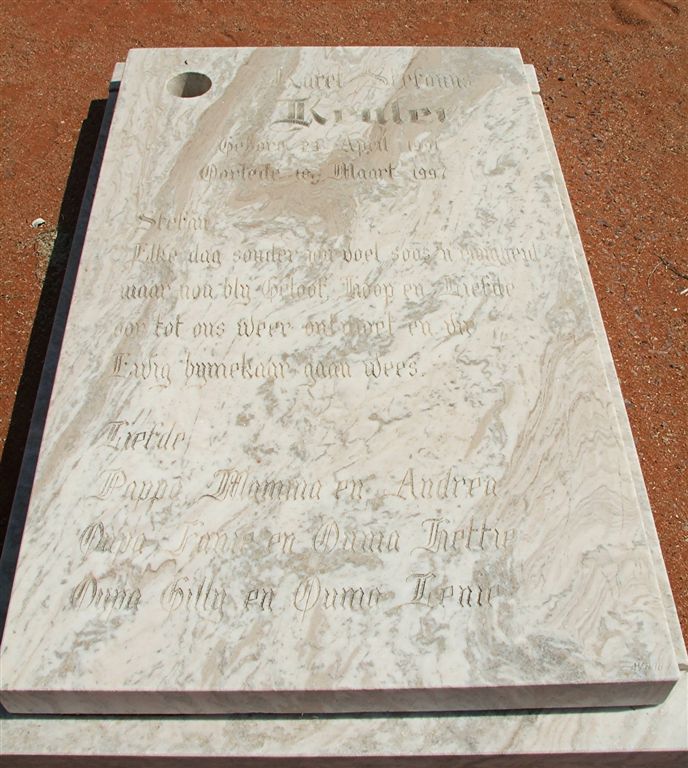 Karel Stefanus
Gebore April
Oorlede Maart 1997
Stefan
Elke dag sonder jou voel soos 'n
maar nou bly Geloof, Hoop en Liefde
oor tot ons weer ontmoet en vir
Ewig bymekaar gaan wees.
Liefde,
Pappa, Mamma en Andrea
Oupa Fanie en Ouma Hettie
Oupa Gilly en Ouma Lenie